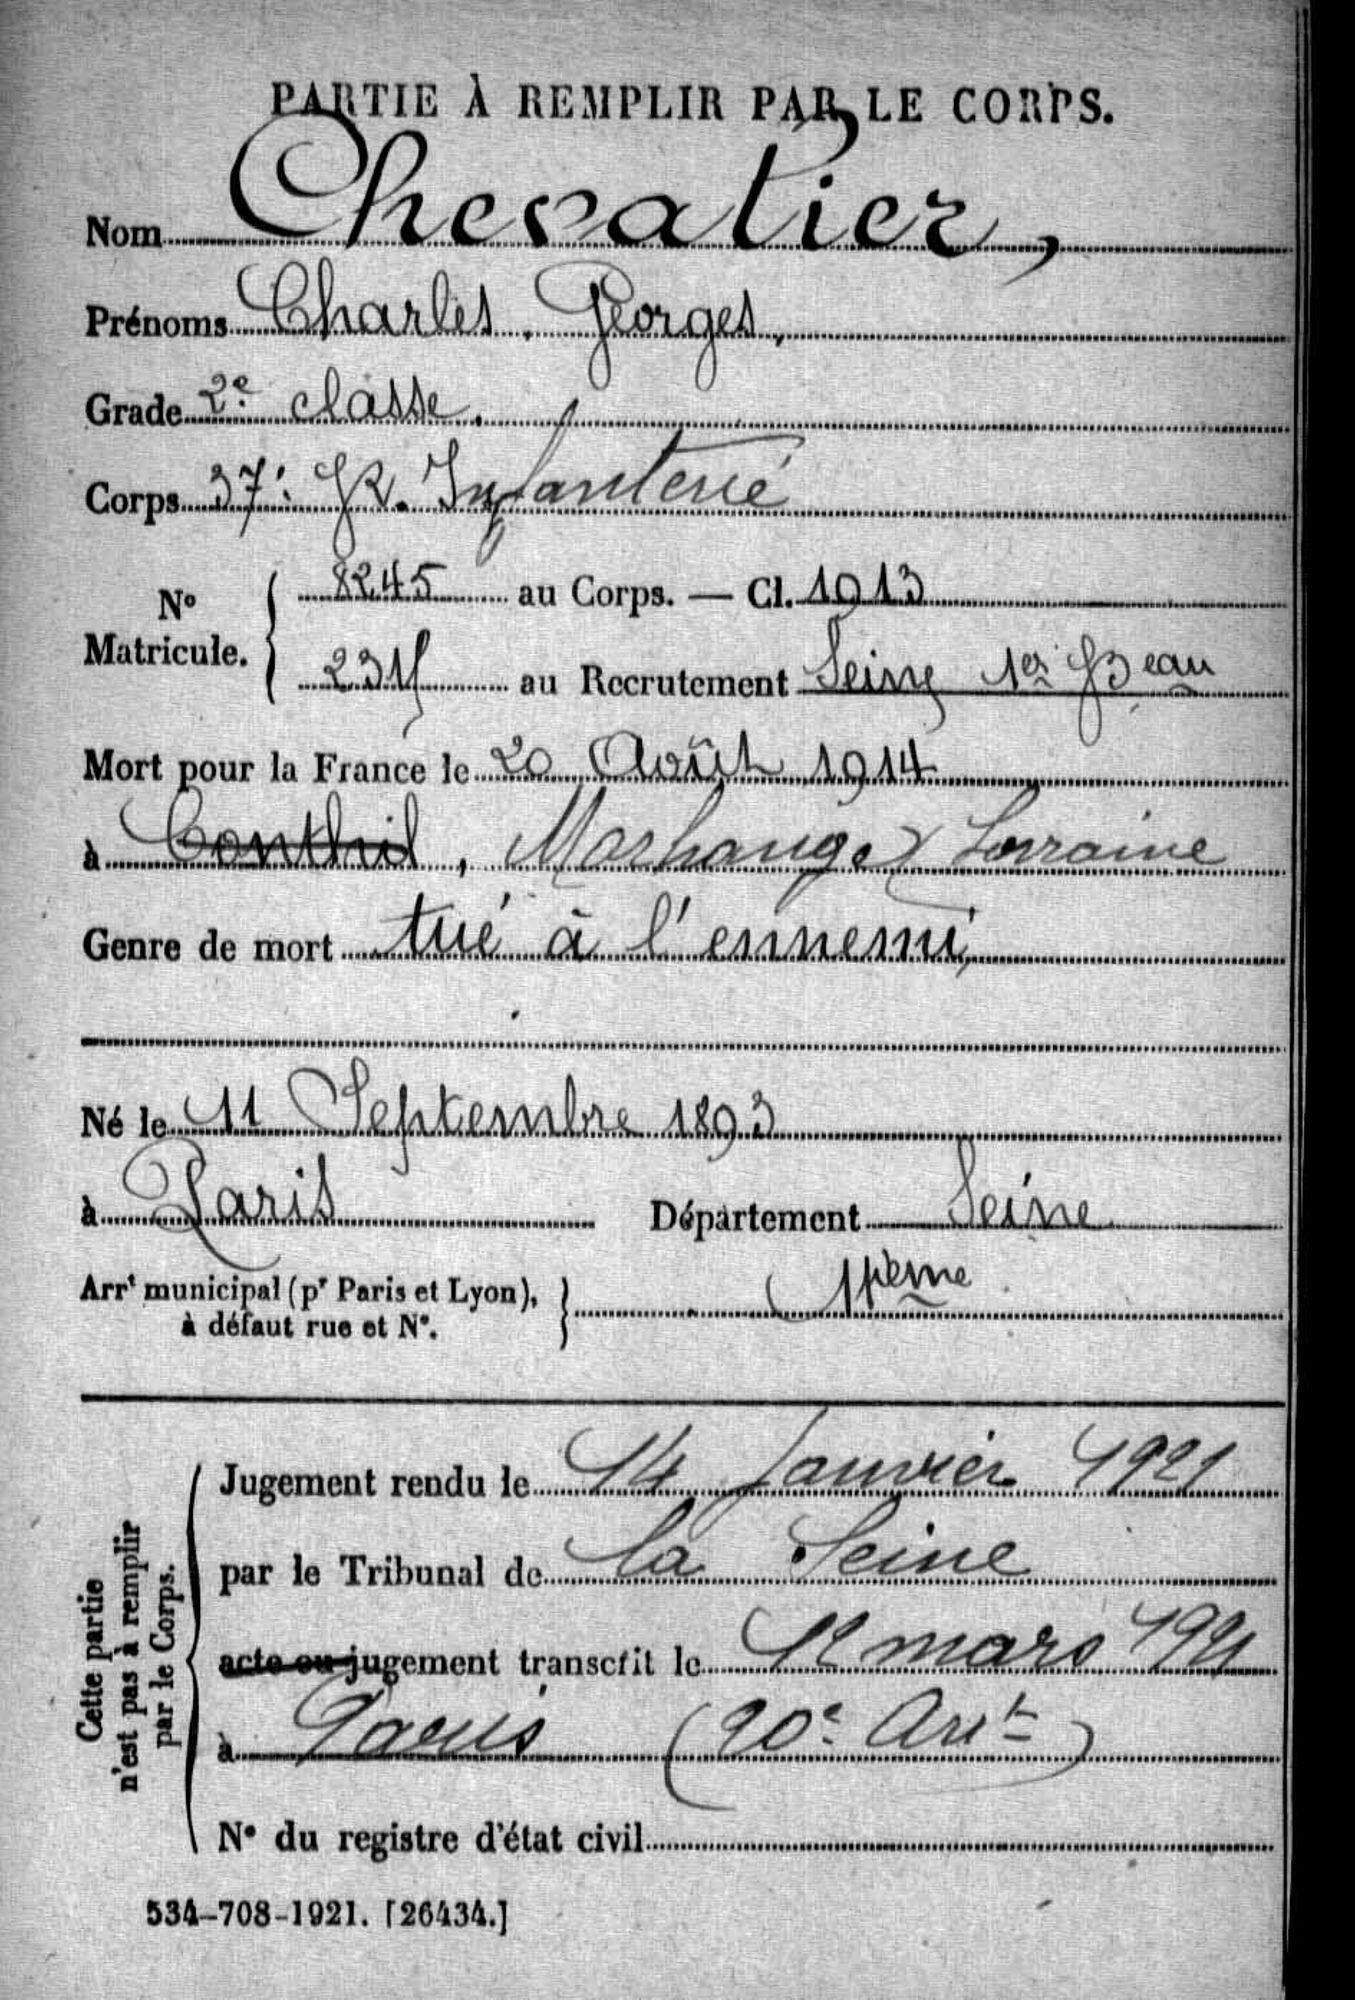 PARTIE À REMPLIR PAR LE CORPS.
Nom Chevalier,
Prénoms Charles, Georges,
Grade 2e classe.
Corps 37e R. Infanterie
No Matricule. 8245 au Corps. — Cl. 1913
231 au Recrutement Seine 1er Beau
Mort pour la France le 20 Août 1914
à Conthil, Morhange Lorraine
Genre de mort tué à l'ennemi,
Né le 11 Septembre 1893
à Paris Département Seine
Arrt municipal (pr Paris et Lyon),
à défaut rue et No.
Cette partie n'est pas à remplir par le Corps.
Jugement rendu le 14 Janvier 1921
par le Tribunal de la Seine
acte ou jugement transcrit le 12 mars 1921
à Paris (20e Arrt)
No du registre d'état civil
534-708-1921. [26434.]